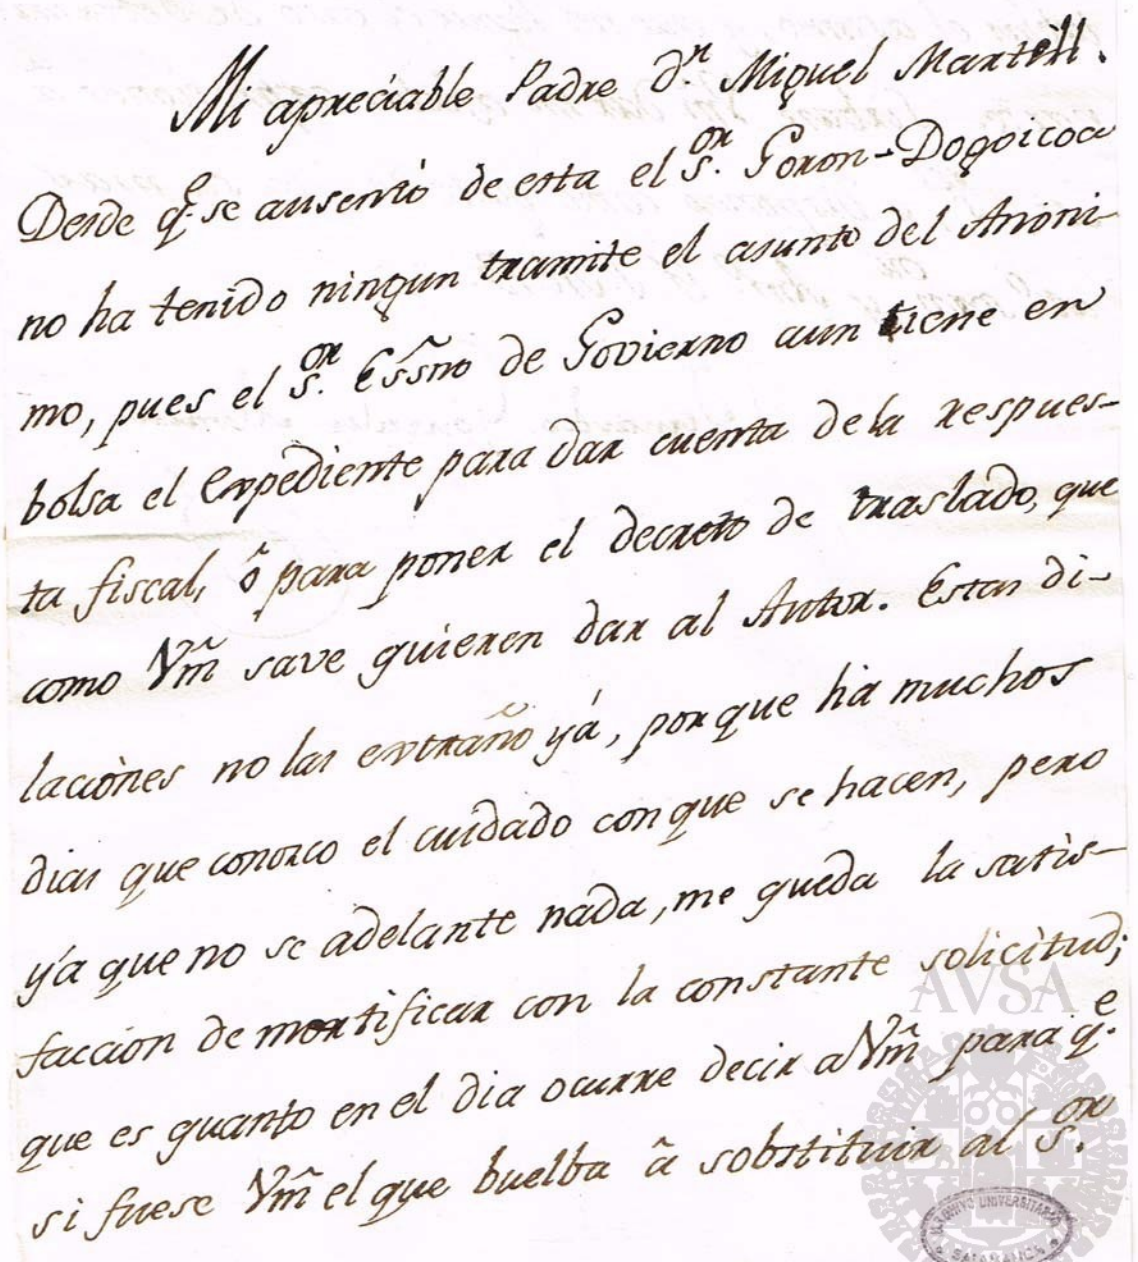 Mi apreciable Padre D.n Miguel Martèll.
Desde q.e se ausentó de esta el S.or Goron-Dogoicoa
no ha tenido ningun tramite el asunto del Anòni-
mo, pues el S.or Essño de Govierno aun tiene en
bolsa el Expediente para dar cuenta dela respues-
ta fiscal, ô para poner el decreto de traslado, que
como Vm̃ save quieren dar al Autor. Estas di-
laciònes no las extraño yá, porque ha muchos
dias que conozco el cuidado con que se hacen, pero
yá que no se adelante nada, me queda la satìs-
faccion de mortificar con la constante solicitud;
que es quanto en el dia ocurre decir a Vm̃ para q.e
si fuese Vm̃ el que buelba â sobstituir al S.or
AVSA
ARCHIVO UNIVERSITARIO
SALAMANCA